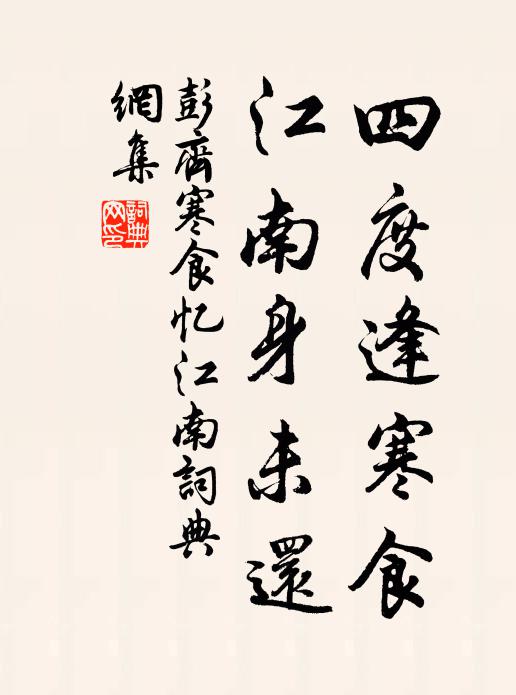 四度逢寒食
江南身未還
彭齊寒食忆江南詞典
網集
詞典網印